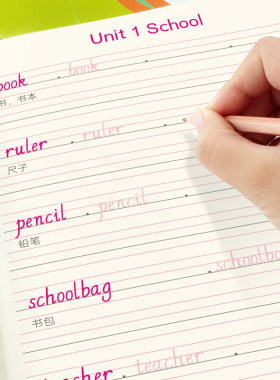 Unit 1 School
book book
书，书本
ruler ruler s
尺子
pencil pencil
铅笔
schoolbag schoolbag
书包
teacher teacher